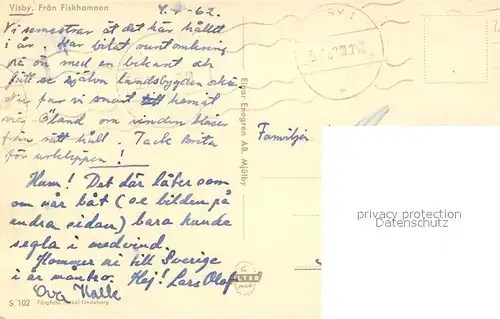 Visby. Från Fiskhamnen
62.
Vi semestrar åt det här hållet
i år. Har bilat runt omkring
på ön med en bekant och
fått se själva landsbygden också
får vi snart hemåt
via Öland om vinden blåser
från rätt håll. Tack Brita
för urklippen!
Hum! Det där låter som
om vår båt (o.e bilden på
andra sidan) bara kunde
segla i medvind.
Kommer ni till Sverige
i år månbro. Hej! Lars Olof
Eva Kalle
S 102
Familjen
Einar Enegren AB. Mjölby
ULTRA
privacy protection
for our customers